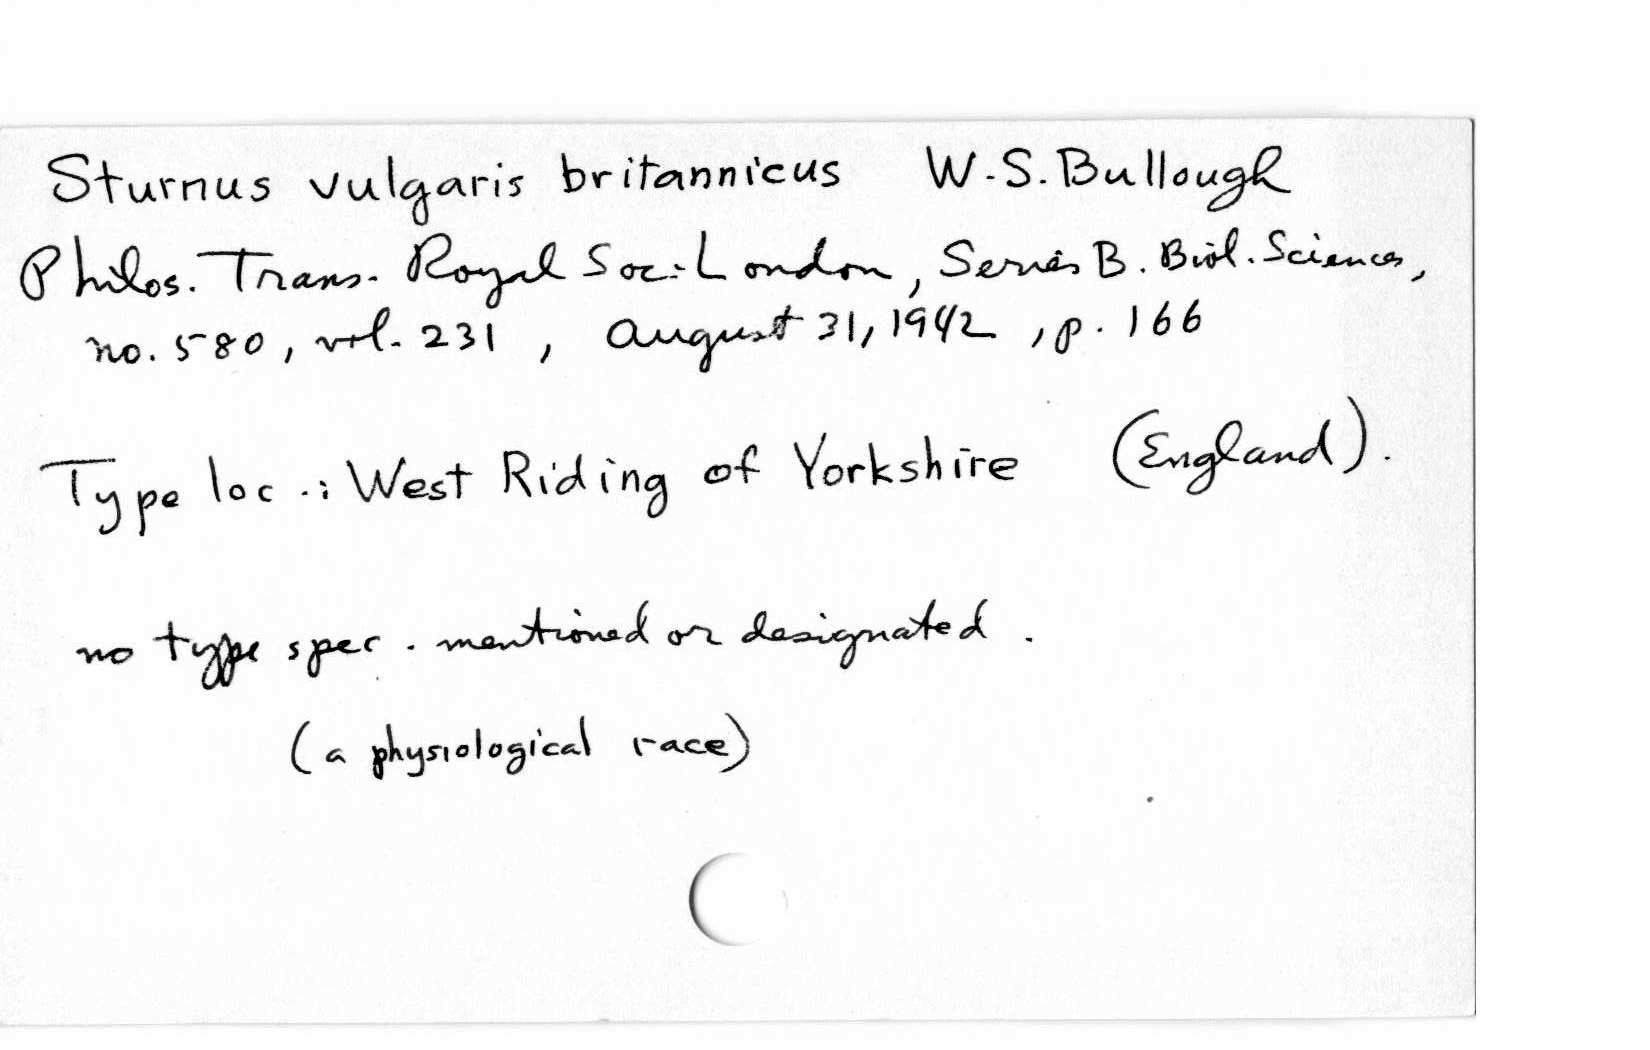 Sturnus vulgaris britannicus W.S. Bullough
Philos. Trans. Royal Soc. London, Series B. Biol. Sciences,
no. 580, vol. 231, August 31, 1942, p. 166
Type loc.: West Riding of Yorkshire (England).
no type spec. mentioned or designated.
(a physiological race)